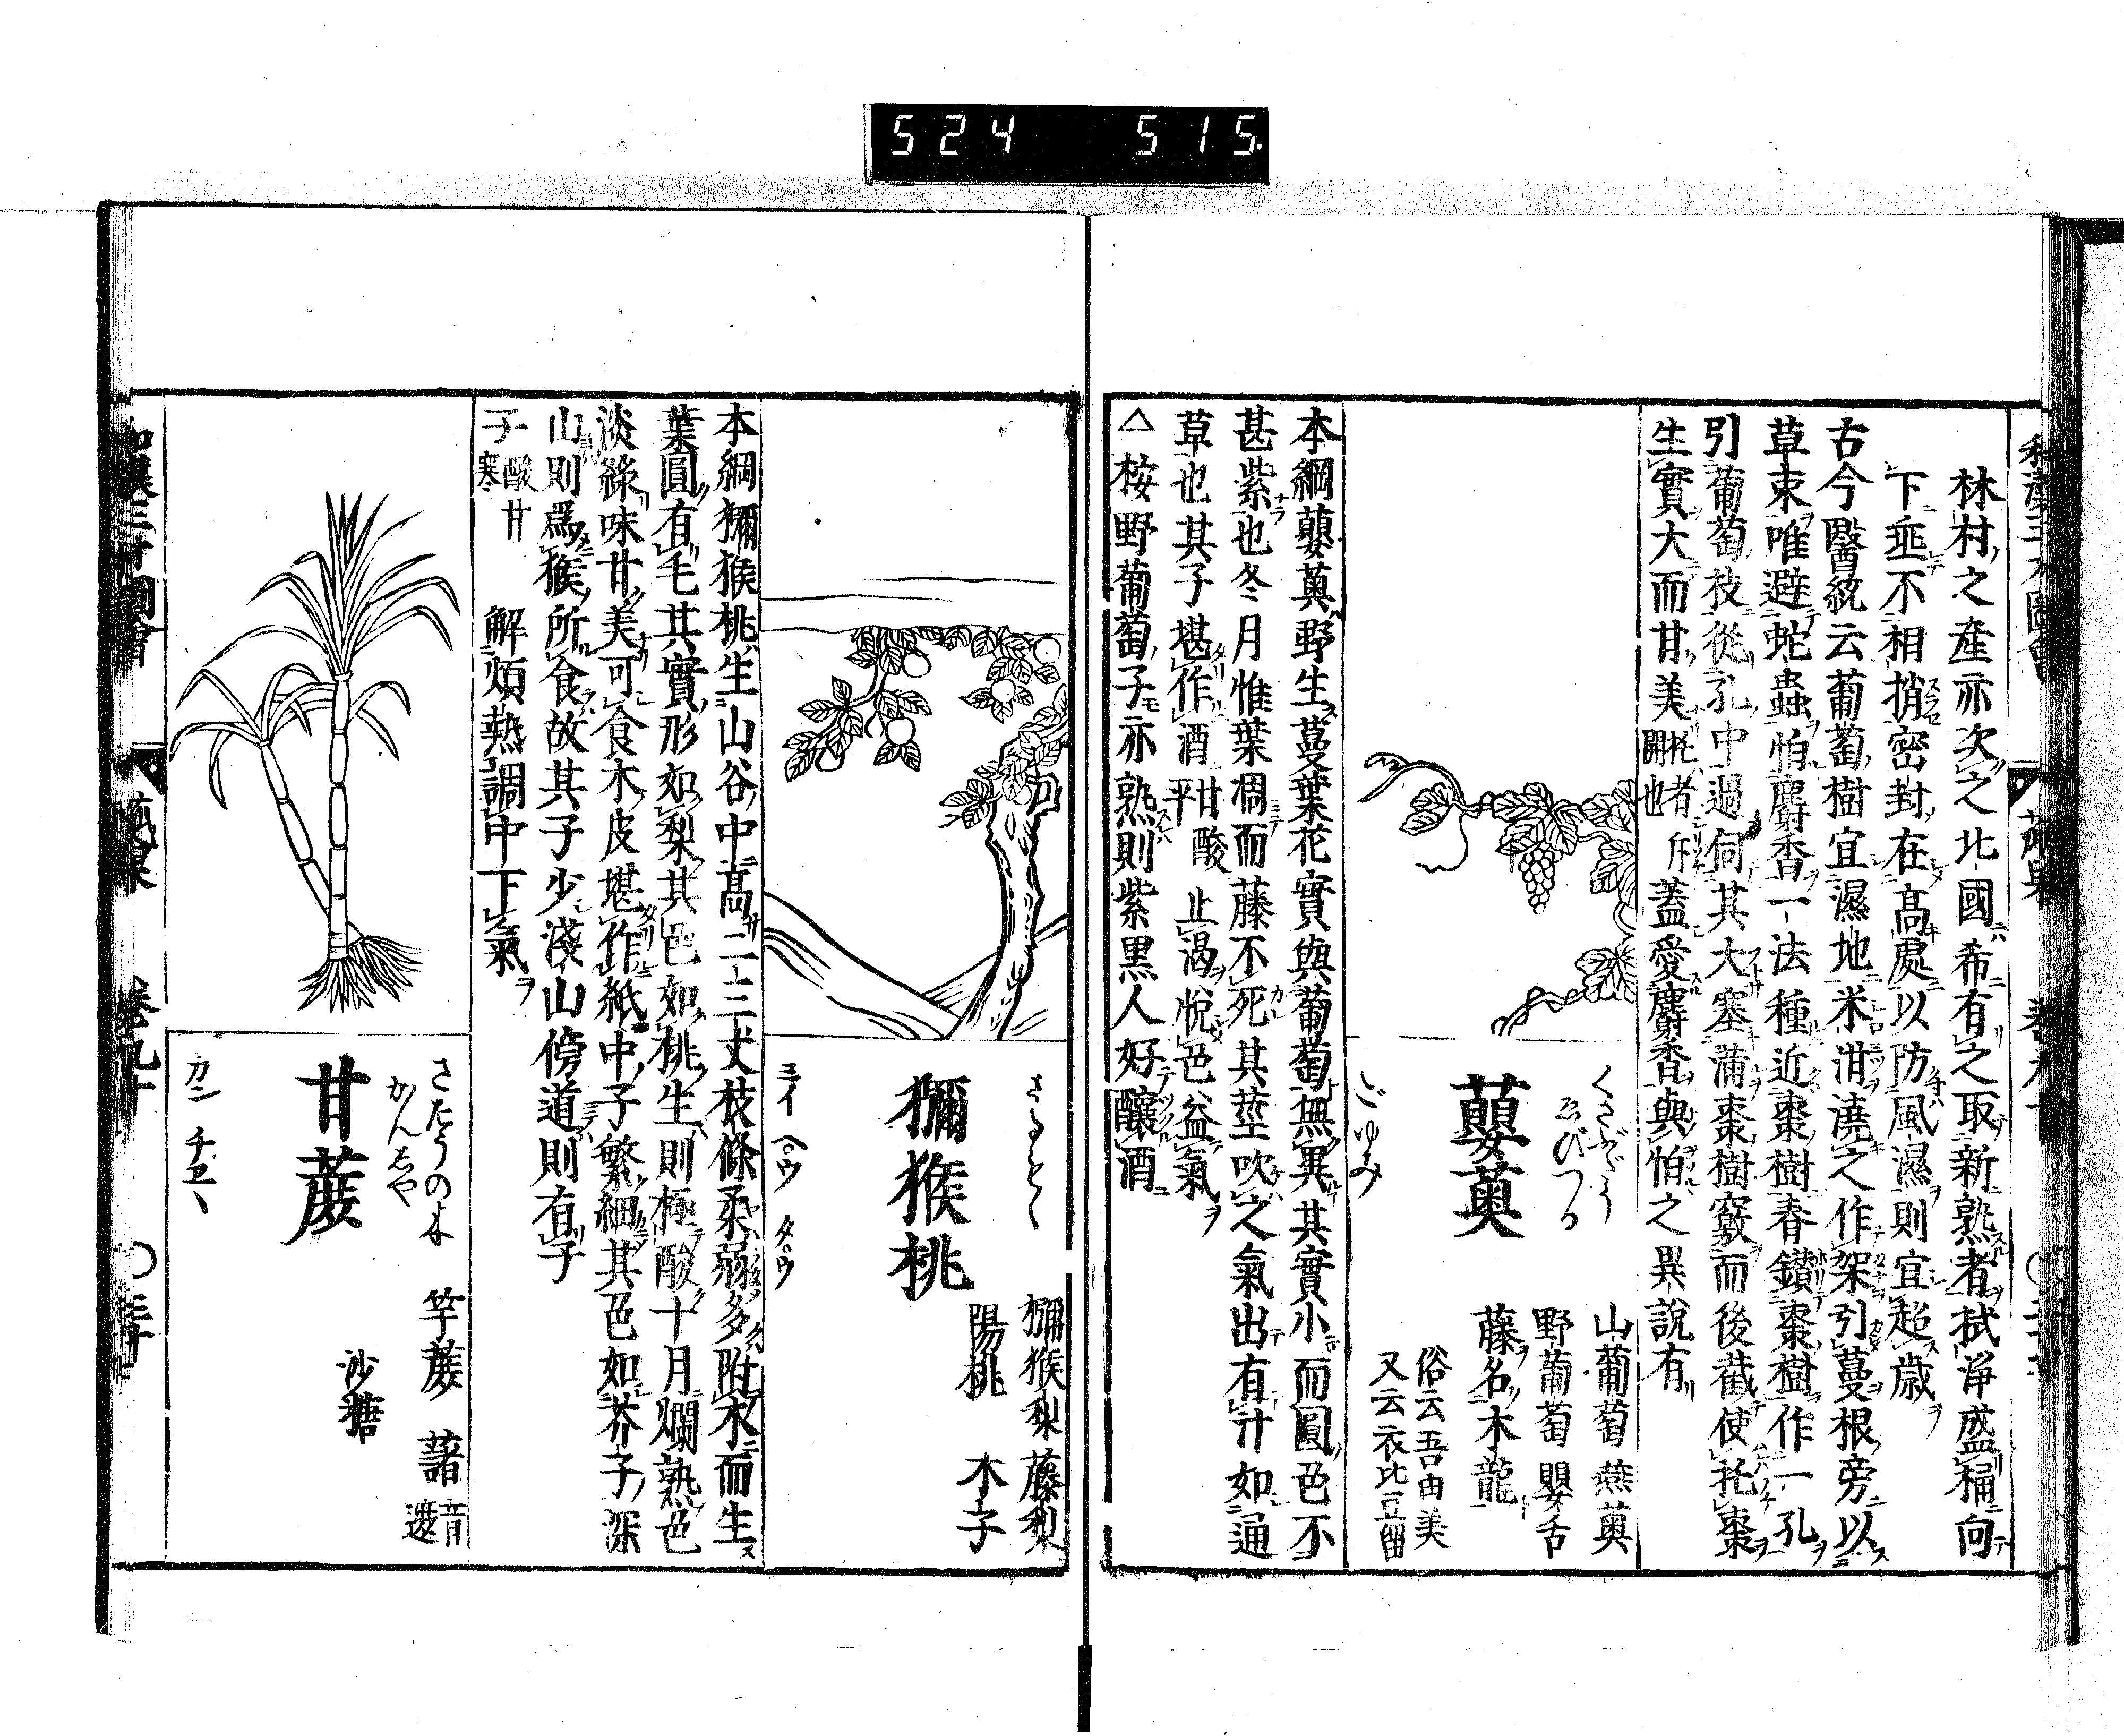 524 515
林村之産亦次之北國希有之取新熟者拭淨盛桶向
下埀不相捎密封在髙處以防風濕則宜超歳
古今醫統云葡萄樹宜濕地米泔澆之作架引蔓根旁以
草束唯避蛇蟲怕麝香一法種近棗樹春鑚棗樹作一孔
引葡萄枝從孔中過伺其大塞滿棗樹竅而後截使托棗
生實大而甘美托者斥開也蓋愛麝香與怕之異說有
くさぶだう
ゑびつる
蘡薁
ごゆみ
山葡萄 燕薁
野葡萄 嬰舌
藤名木龍
俗云吾由美
又云衣比豆留
本綱蘡薁野生蔓葉花實與葡萄無異其實小而圓色不
甚紫也冬月惟葉凋而藤不死其莖吹之氣出有汁如通
草也其子堪作酒 甘酸平 止渴悅色益氣
△桉野葡萄子亦熟則紫黒人好釀酒
獼猴桃
ミイ ヘ゜ウ タ゜ウ
獼猴梨 藤梨
陽桃 木子
本綱獼猴桃生山谷中髙二三丈枝條柔弱多附木而生
葉圓有毛其實形如梨其色如桃生則極酸十月爛熟色
淡綠味甘美可食木皮堪作紙中子繁細其色如芥子深
山則爲猴所食故其子少淺山傍道則有子
子 酸甘寒 解煩熱調中下氣
さたうの木
かんしや
甘蔗
カン チヱヽ
竿蔗 藷音遮
沙糖